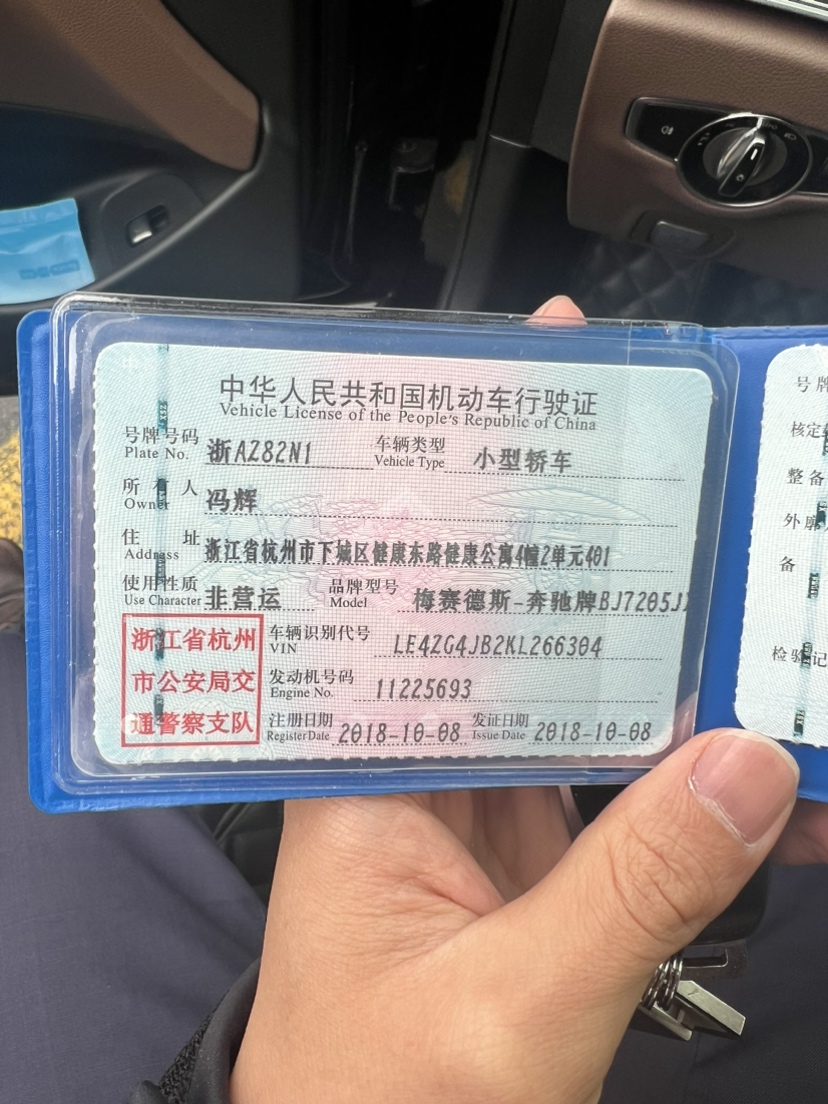 中华人民共和国机动车行驶证
Vehicle License of the People's Republic of China
号牌号码 浙AZ82N1 车辆类型 小型轿车
Plate No. Vehicle Type
所有人 冯辉
Owner
住址 浙江省杭州市下城区健康东路健康公寓4幢2单元401
Address
使用性质 非营运 品牌型号 梅赛德斯-奔驰牌BJ7205J
Use Character Model
浙江省杭州
市公安局交
通警察支队
车辆识别代号 LE4ZG4JB2KL266304
VIN
发动机号码 11225693
Engine No.
注册日期 2018-10-08 发证日期 2018-10-08
Register Date Issue Date
号牌
核定
整备
外廓
备
检验记